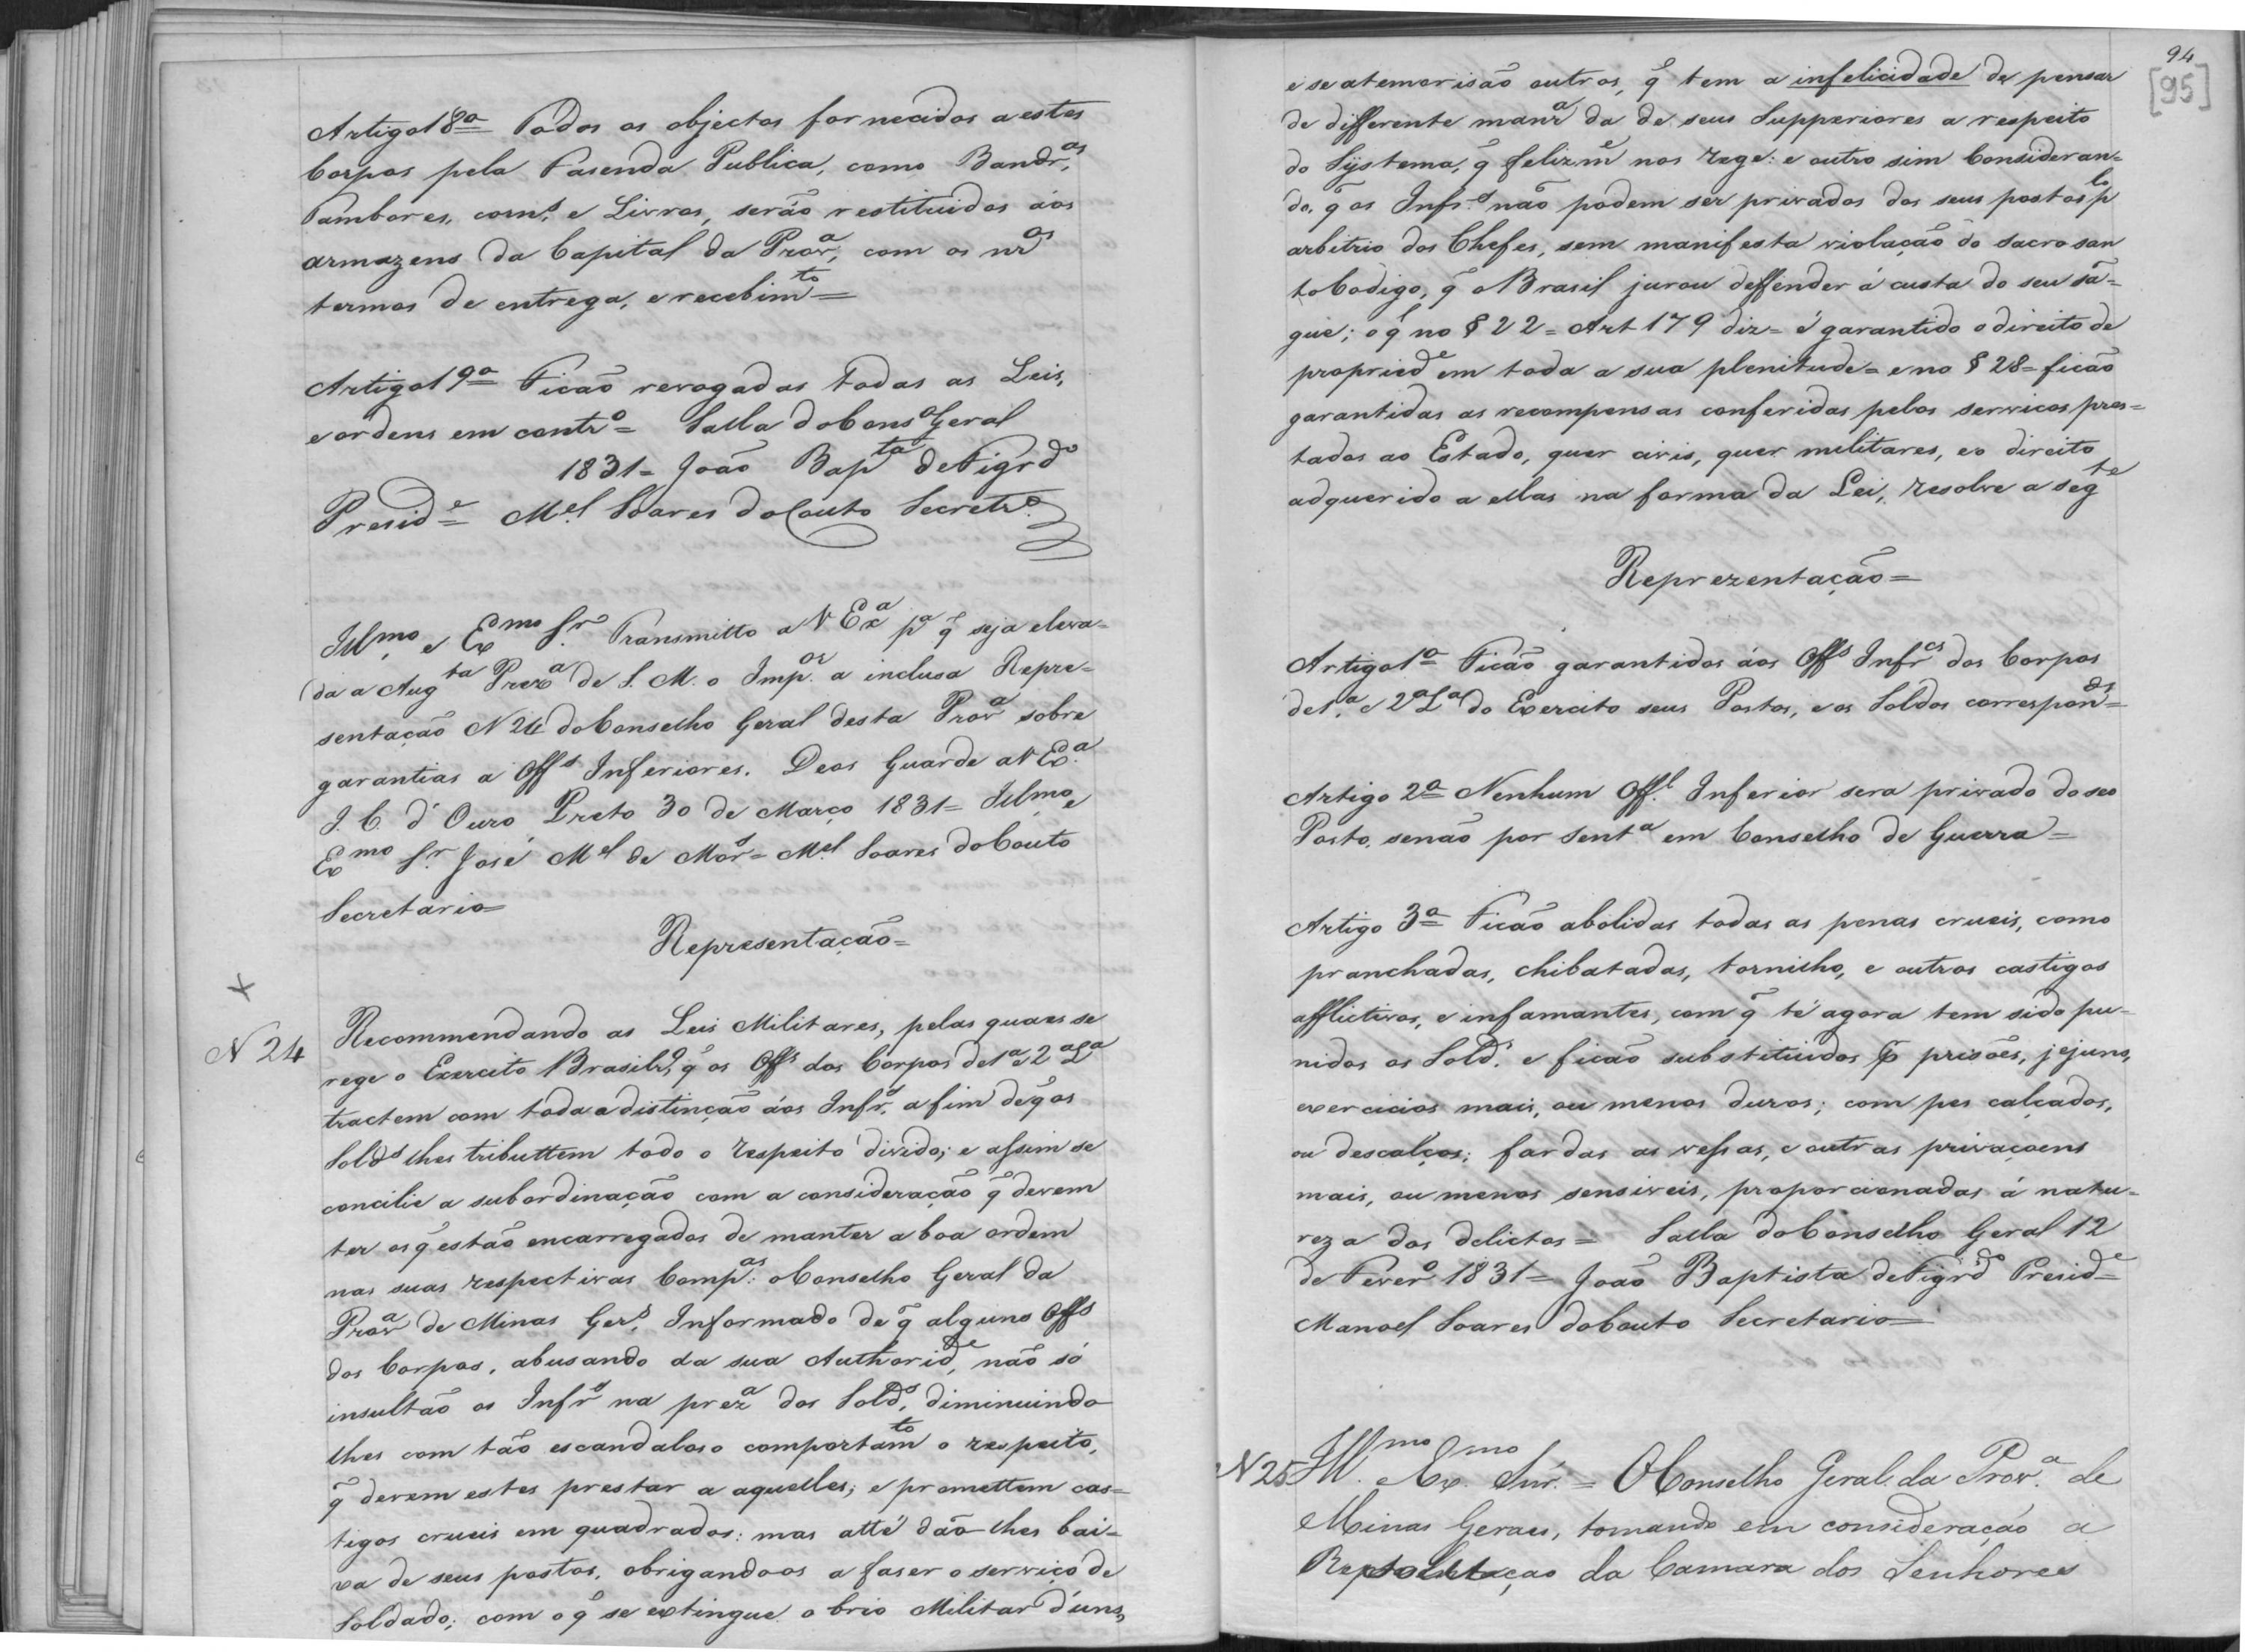 Artigo 18º Todos os objectos fornecidos a estes
Corpos pela Fasenda Publica, como Bandr.as
Tambores, corn.s e Livros, serão restituidos áos
armazens da Capital da Prov.a, com os nr.os
termos de entrega, e recebim.to =
Artigo 19º Ficão revogadas todas as Leis,
e ordens em contr.o = Salla do Cons.o Geral
1831 = João Bap.ta de Figr.do
Presid.e = M.el Soares do Couto Secretr.o
Ill.mo e Ex.mo Sr. Transmitto a V Ex.a p.a q̃ seja eleva=
da a Aug.ta Prez.a de S. M. o Imp.or a inclusa Repre=
sentação N 24 do Conselho Geral desta Prov.a sobre
garantias a Off.s Inferiores. Deos Guarde a V Ex.a
I. C. d'Ouro Preto 30 de Março 1831 = Ill.mo e
Ex.mo Sr. José M.el de Mor.s = M.el Soares do Couto
Secretario =
Representação =
N 24
Recommendando as Leis Militares, pelas quaes se
rege o Exercito Brasilr.o, q̃ os Off.s dos Corpos de 1.a e 2.a L.a
tractem com toda a distinção áos Infr.s, a fim de q̃ os
Sold.s lhes tributtem todo o respeito divido; e assim se
concilie a subordinação com a consideração q̃ devem
ter os q̃ estão encarregados de manter a boa ordem
nas suas respectivas Comp.as: o Conselho Geral da
Prov.a de Minas Ger.s, Informado de q̃ alguns Off.s
dos Corpos, abusando da sua Authorid.e, não só
insultão os Infr.s na prez.a dos Sold.s, diminuindo
lhes com tão escandaloso comportam.to o respeito,
q̃ devem estes prestar a aquelles; e promettem cas=
tigos crueis em quadrados: mas atté dão lhes bai=
xa de seus postos, obrigando os a faser o serviço de
Soldado; com o q̃ se extingue o brio Militar d'uns,
94
[95]
e se atemorisão outros, q̃ tem a infelicidade de pensar
de differente manr.a da de seus Supperiores a respeito
do Systema, q̃ felizm.e nos rege: e outro sim Consideran=
do, q̃ os Infr.s não podem ser privados dos seus postos p.lo
arbitrio dos Chefes, sem manifesta violação do sacrosan
to Codigo, q̃ o Brasil jurou deffender á custa do seu sã=
gue; o q̃ no § 22 = Art 179 diz = é garantido o direito de
propried.e em toda a sua plenitude = e no § 28 = ficão
garantidas as recompensas conferidas pelos servicos pres=
tados ao Estado, quer civis, quer militares, e o direito
adquerido a ellas na forma da Lei, resolve a seg.te
Reprezentação =
Artigo 1º Ficão garantidos áos Off.s Infr.es dos Corpos
de 1.a e 2.a L.a do Exercito seus Postos, e os Soldos correspon.des =
Artigo 2º Nenhum Off.l Inferior sera privado do seo
Posto, senão por Sent.a em Conselho de Guerra =
Artigo 3º Ficão abolidas todas as penas crueis, como
pranchadas, chibatadas, tornilho, e outros castigos
afflictivos, e infamantes, com q̃ té agora tem sido pu=
nidos os Sold.s e ficão substituidos p prisões, jejuns,
exercicios mais, ou menos duros; com pes calçados,
ou descalços; fardas as vessas, e outras privaçoens
mais, ou menos sensiveis, proporcionadas á natu=
reza dos delictos = Salla do Conselho Geral 12
de Fever.o 1831 = João Baptista de Figr.do Presid.e =
Manoel Soares do Couto Secretario =
N 25 Ill.mo e Ex.mo Snr. = O Conselho Geral da Prov.a de
Minas Geraes, tomando em consideração a
da Camara dos Senhores